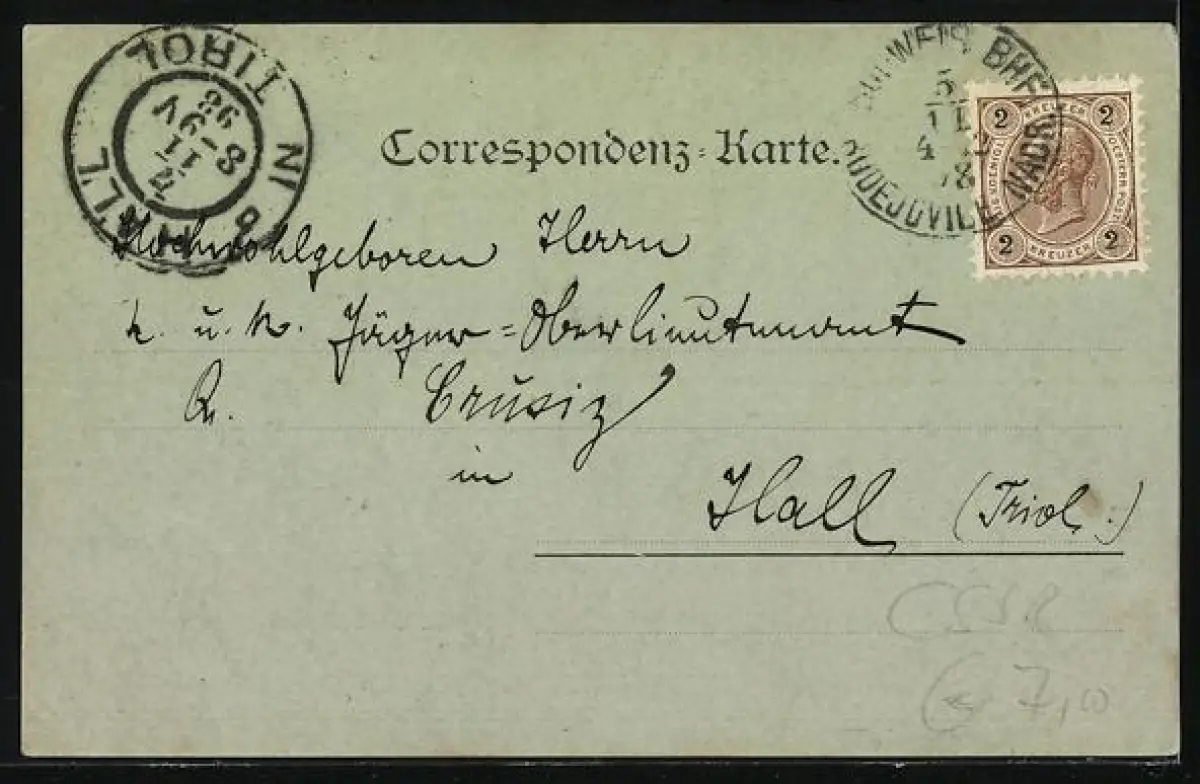 HALL IN TIROL
7
11
8-9V
98
BUDWEIS BHF.
5
11
4
BUDĚJOVICE NÁDR.
2 KREUZER 2
2 KREUZER 2
Correspondenz-Karte.
Hochwohlgeboren Herrn
k. u. k. Jäger-Oberlieutenant
R. Crusiz
in
Hall (Triol.)
ČSSR
7,10